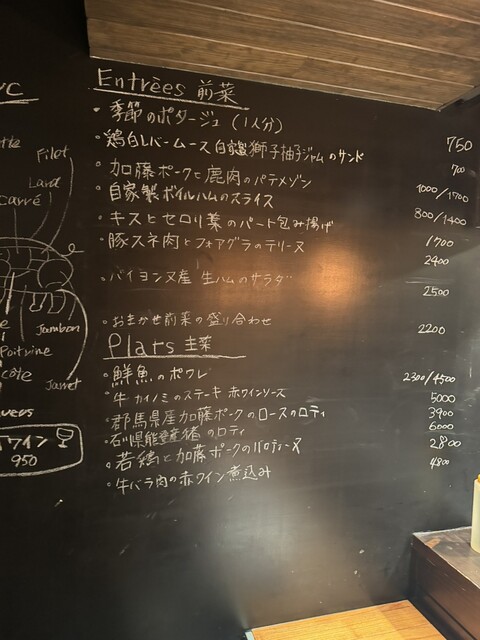 Filet
Lard
Carré
Jambon
Poitrine
côte
Jarret
ワイン
950
Entrées 前菜
・季節のポタージュ (1人分) 750
・鶏白レバームース 自家製獅子柚子ジャムのサンド 700
・加藤ポークと鹿肉のパテメゾン 1000/1700
・自家製ボイルハムのスライス 800/1400
・キスとセロリ葉のパート包み揚げ 1700
・豚スネ肉とフォアグラのテリーヌ 2400
・バイヨンヌ産 生ハムのサラダ 2500
・おまかせ前菜の盛り合わせ 2200
Plats 主菜
・鮮魚のポワレ 2300/4500
・牛カイノミのステーキ 赤ワインソース 5000
・群馬県産加藤ポークのロースのロティ 3900
・石川県能登産猪のロティ 6000
・若鶏と加藤ポークのバロティーヌ 2800
・牛バラ肉の赤ワイン煮込み 4800